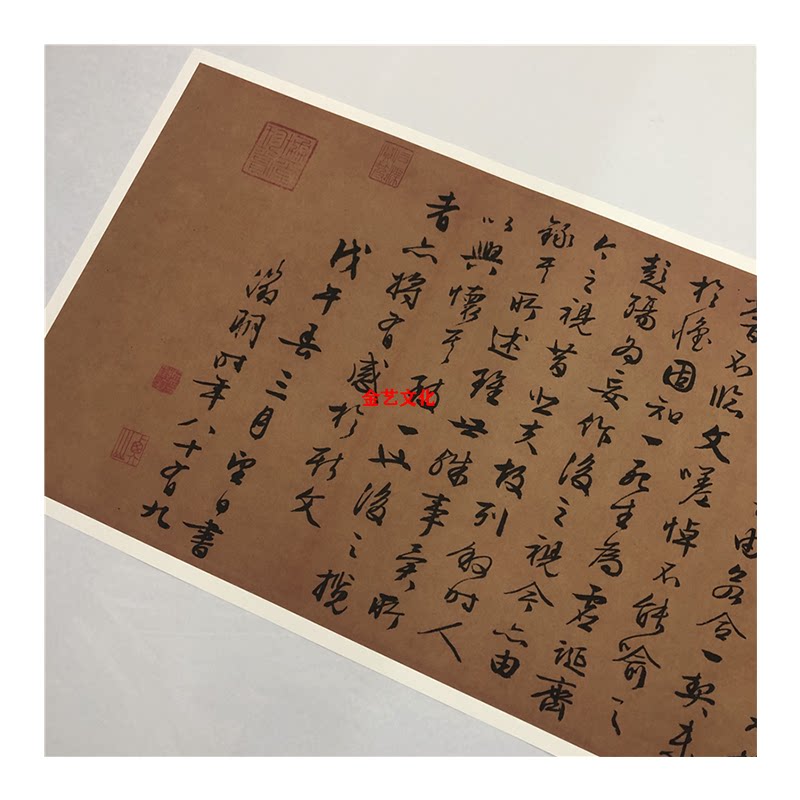 由若合一契未
嘗不臨文嗟悼不能喻之
於懷固知一死生為虛誕齊
彭殤為妄作後之視今亦由
今之視昔悲夫故列敘時人
錄其所述雖世殊事異所
以興懷其致一也後之攬
者亦將有感於斯文
戊午春三月望日書
徵明時年八十有九
金艺文化